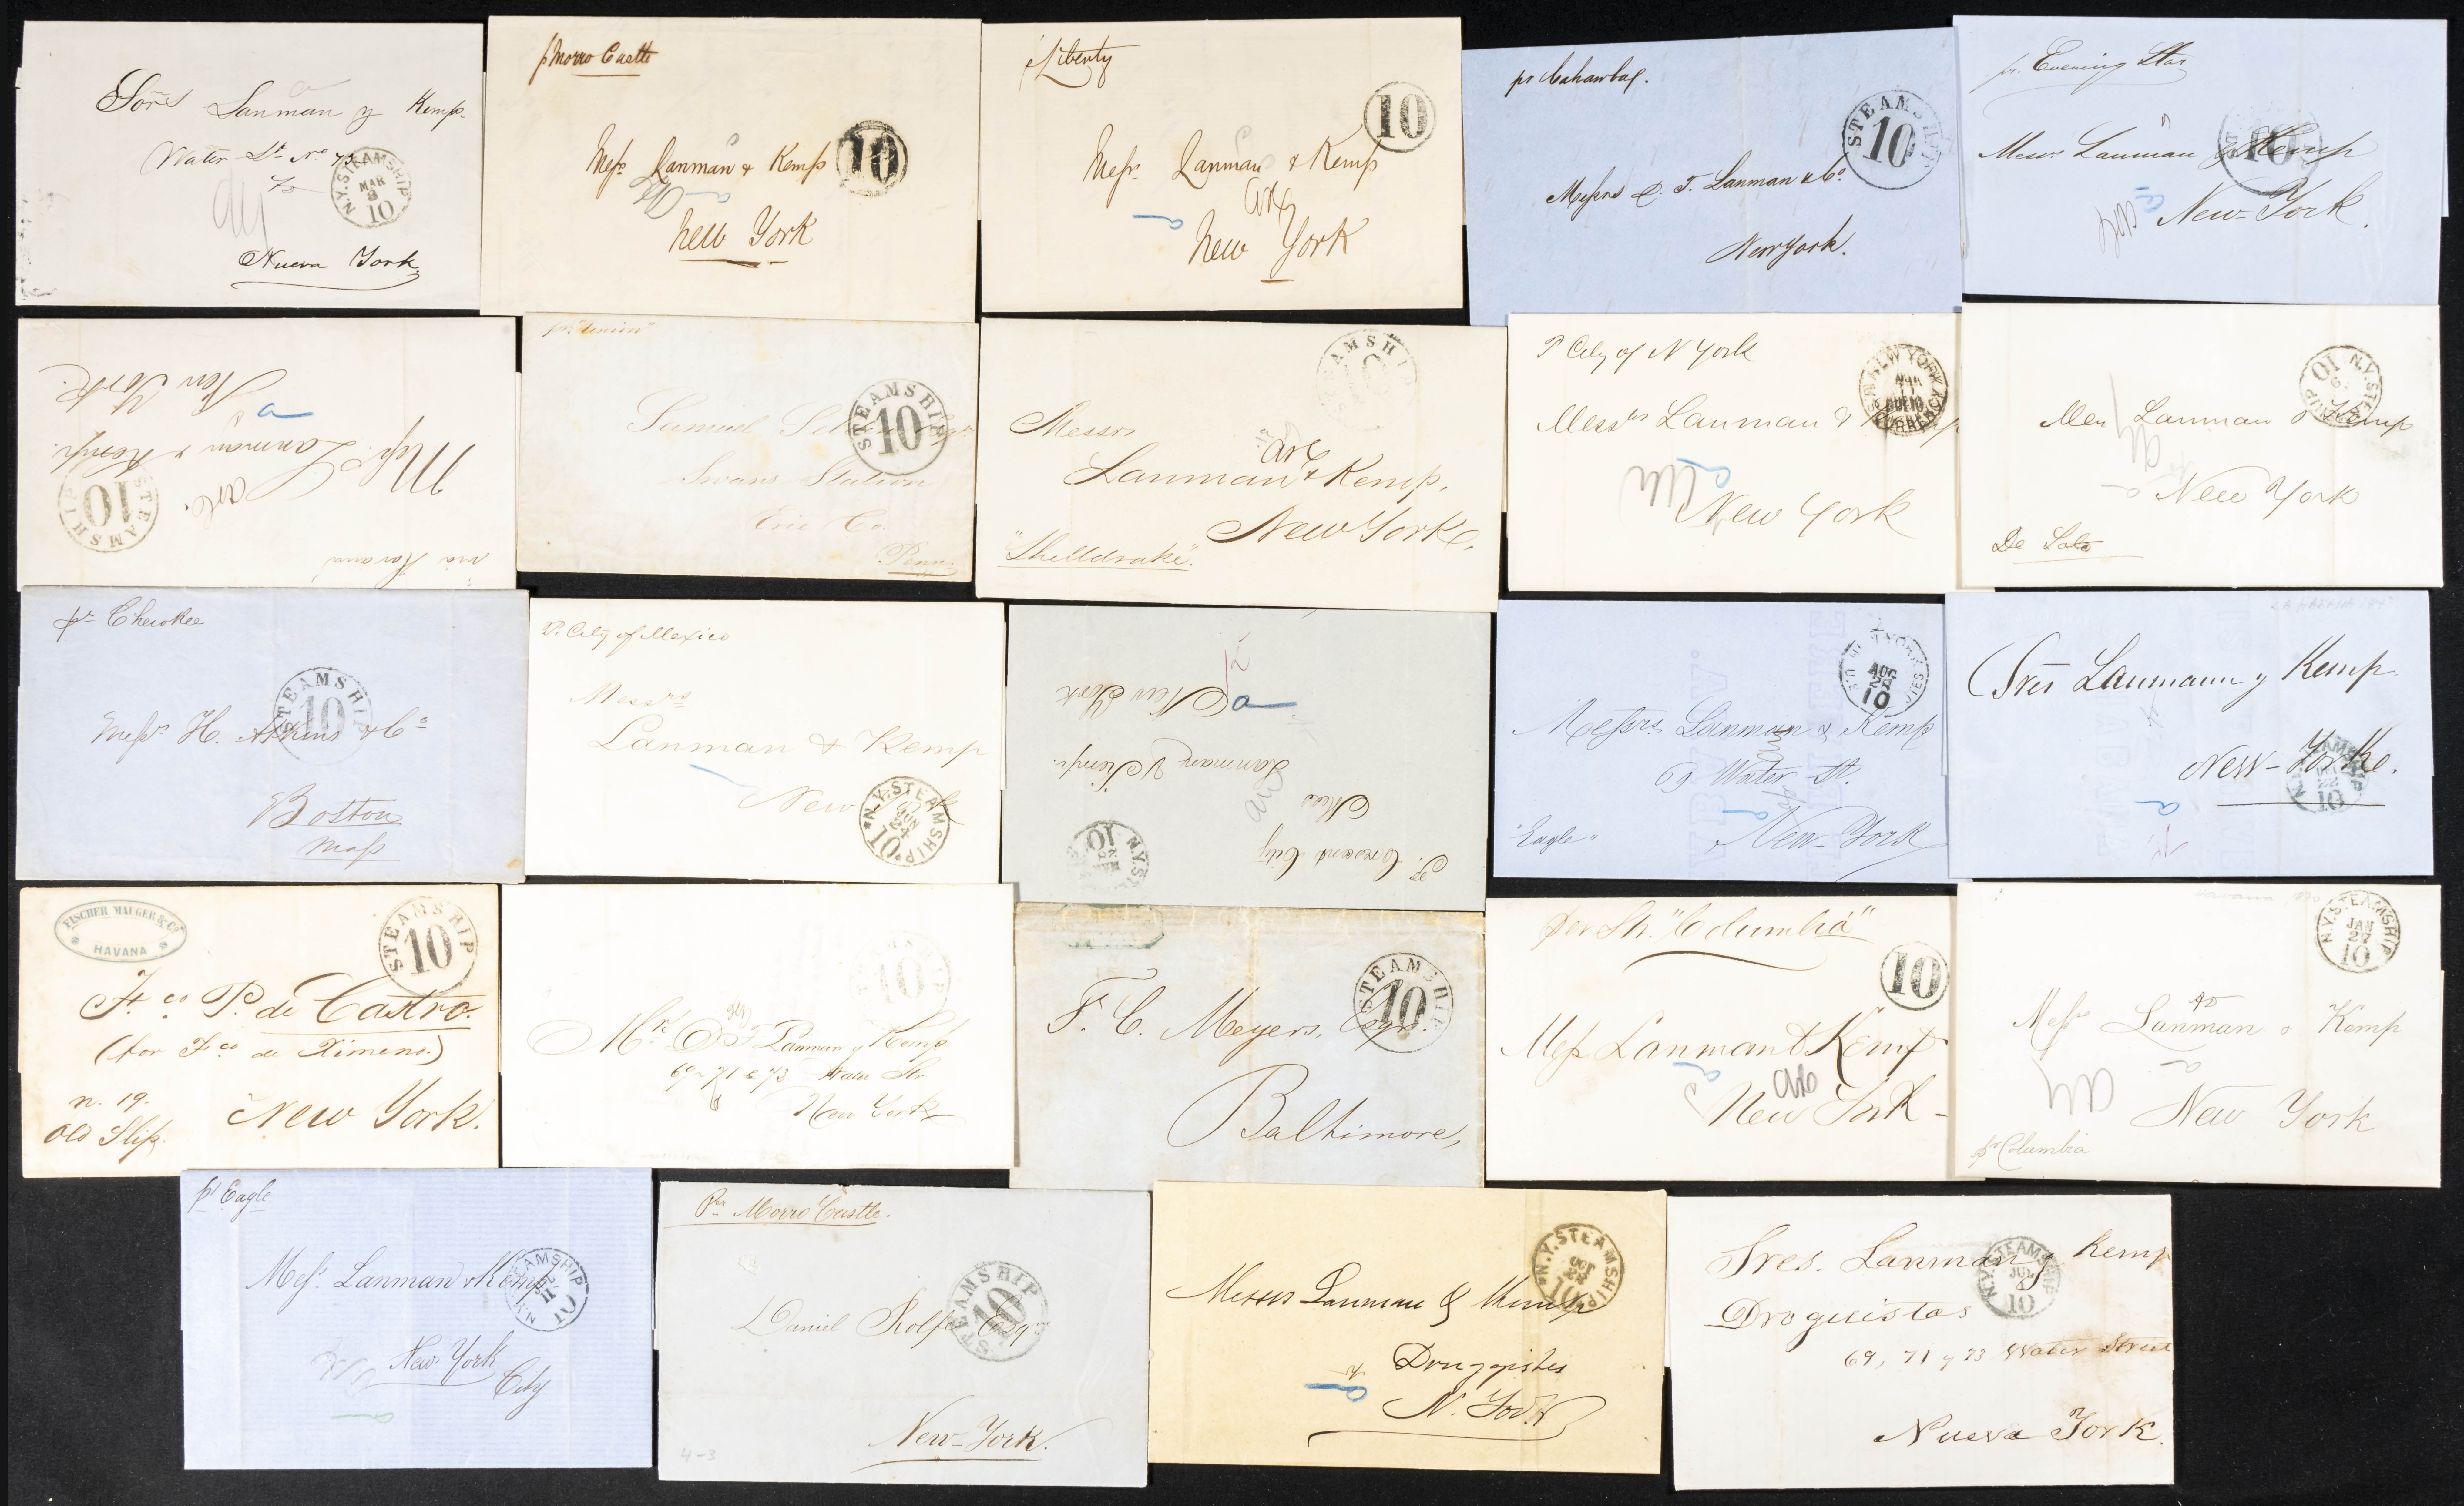 Sores Lanman y Kemp.
Water St. No. 73
N.Y. STEAMSHIP
MAR
3
10
Nueva York.
p Morro Castle
Messrs Lanman & Kemp
10
New York
p Liberty
10
Messrs Lanman & Kemp
New York
pr Cahawba.
STEAMSHIP
10
Messrs D. T. Lanman & Co.
New York.
pr. Evening Star
10
Messrs Lanman y Kemp
New-York.
"via Havana"
Messrs. Lanman & Kemp.
New York.
STEAMSHIP
10
pr. "Union"
STEAMSHIP
10
Samuel
Swans Station
Erie Co.
Penn.
STEAMSHIP
10
Messrs
Lanman & Kemp,
New York.
"Shelldrake".
P City of N York
NEW YORK
10
CURRENCY
Messrs Lanman & Kemp
New York
N.Y. STEAMSHIP
10
Lanman & Kemp
New York
De Soto
pr Cherokee
STEAMSHIP
10
Messrs H. Atkins & Co
Boston
Mass
P. City of Mexico
Messrs
Lanman & Kemp
New
N.Y. STEAMSHIP
JUN
24
10
P. Crescent City
Mess
Lanman & Kemp.
New York
N.Y. STE
10
AUG
10
Messrs. Lanman & Kemp
69 Water St.
"Eagle"
New-York
LA HABANA
Sres Lanmann y Kemp.
New-Yorke.
22
10
FISCHER MAUGER & Co
HAVANA
STEAMSHIP
10
Fco P. de Castro.
(for Fco de Ximeno.)
n. 19.
Old Slip.
New York.
10
Mr D T Lanman y Kemp
69-71 & 73 Water Str
New York
STEAMSHIP
10
F. C. Meyers, Esqr.
Baltimore,
per Sh. "Columbia"
10
Mess Lanman & Kemp
New York -
Havana
N.Y. STEAMSHIP
JAN
27
10
Messrs Lanman & Kemp
New York
pr Columbia
pr Eagle
N.Y. STEAMSHIP
11
10
Messrs. Lanman & Kemp
New York
City
Per Morro Castle.
STEAMSHIP
10
Daniel Rolfe Esq
New-York.
4-3
N.Y. STEAMSHIP
OCT
22
10
Messrs Lanman & Kemp
Druggistes
N. York
N.Y. STEAMSHIP
JUL
10
Sres. Lanman y Kemp
Droguistas
69, 71 y 73 Water Street
Nueva York.